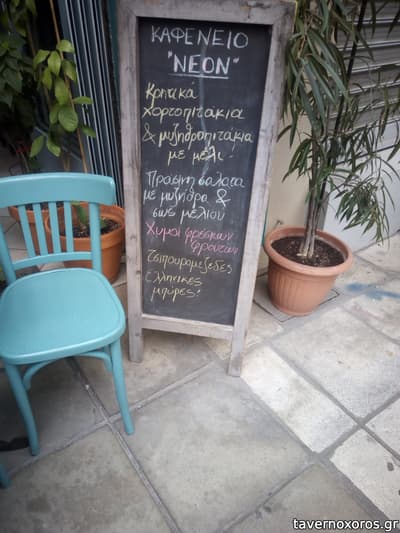 ΚΑΦΕΝΕΙΟ
"ΝΕΟΝ"
Κρητικά
χορτοπιτάκια
& μυζηθροπιτάκια
με μέλι.
Πράσινη σαλάτα
με μυζήθρα &
σως μελιού
Χυμοί φρέσκων
φρούτων
Τσιπουρομεζέδες
Ελληνικές
μπύρες!
tavernoxoros.gr